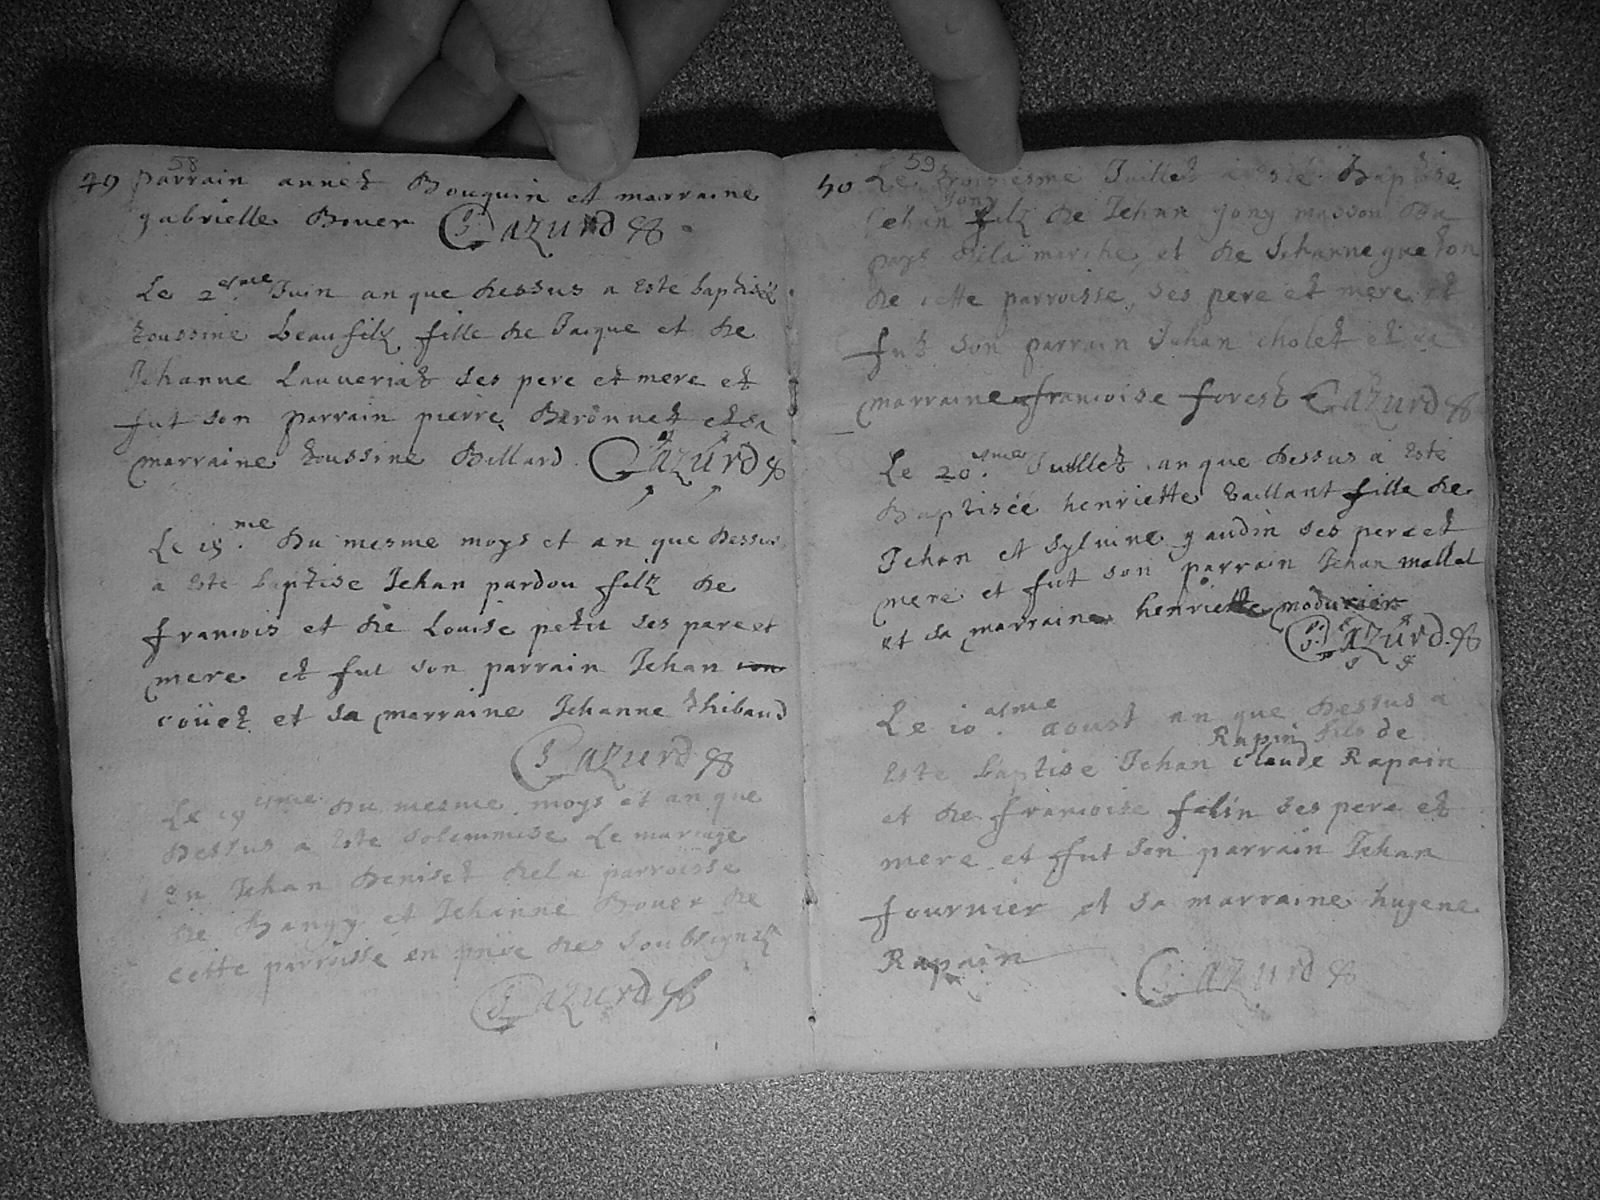 58
49 parrain annet Bouquin et marraine
gabrielle Bouer Cazurd
Le 2esme Juin an que dessus a Este baptisée
toussine beaufilz fille de Jacque et de
Jehanne Lauveriat ses pere et mere et
fut son parrain pierre Baronnet et sa
marraine toussine Billard Cazurd
Le 15.me du mesme moys et an que dessus
a Este baptise Jehan pardou filz de
francois et de Louise petit ses pere et
mere et fut son parrain Jehan
coüet et sa marraine Jehanne thibaud
Cazurd
Le 19 esme du mesme moys et an que
dessus a Este solemnise Le mariage
En Jehan deniset dela parroisse
de Bangy et Jehanne Bouer de
cette parroisse en pnce des soubsignez
Cazurd
59
50 Le troisiesme Juillet a esté Baptise
gony
Jehan filz de Jehan gony masson du
pays dela marche et de Jehanne gueton
de cette parroisse, ses pere et mere et
fut son parrain Jehan cholet et sa
marraine francoise forest Cazurd
Le 20.esme Juillet an que dessus a Esté
Baptisée henriette Vaillant fille de
Jehan et sylvine gaudin ses pere et
mere et fut son parrain Jehan mallet
et sa marraine henriette
Cazurd
Le 10.esme aoust an que dessus a
Rapin fils de
Este baptise Jehan claude Rapain
et de francoise felin ses pere et
mere et fut son parrain Jehan
fournier et sa marraine hugene
Rapain Cazurd